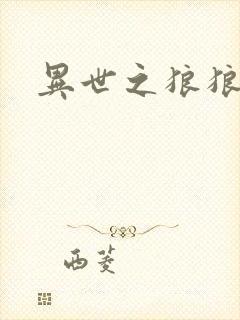 異世之狼狼
西菱